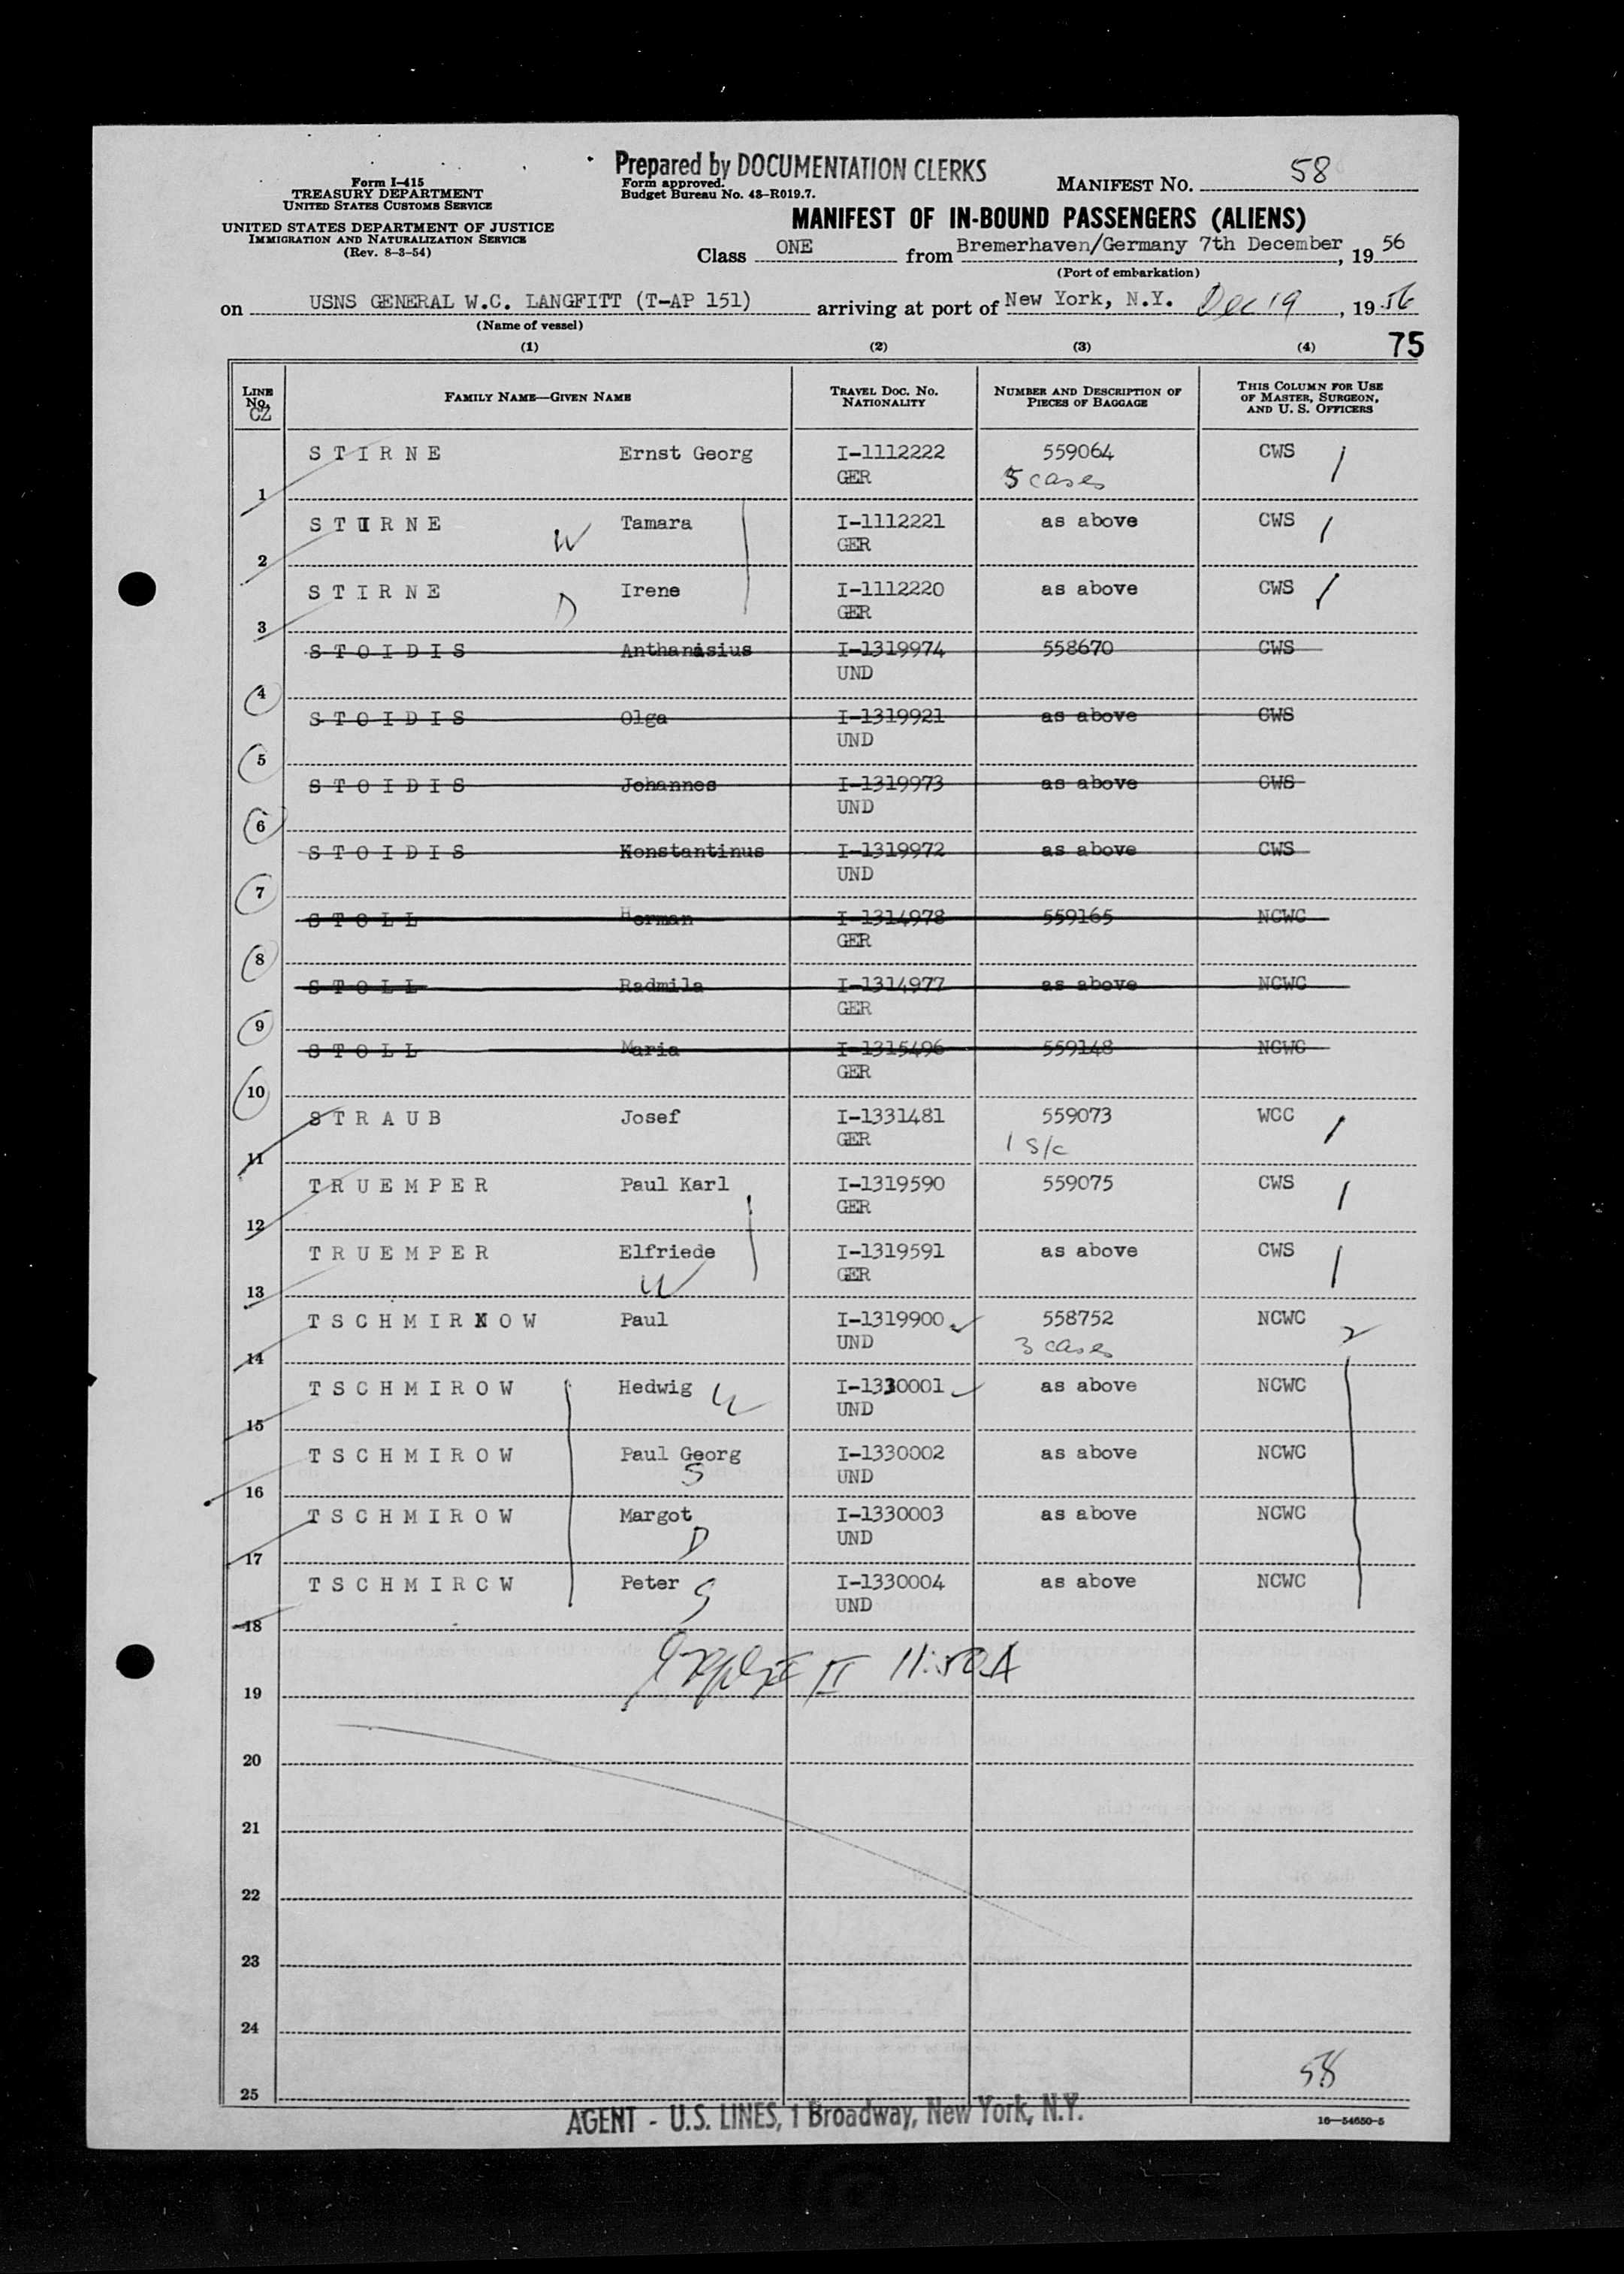 Prepared by DOCUMENTATION CLERKS
Form I-415
TREASURY DEPARTMENT
UNITED STATES CUSTOMS SERVICE
UNITED STATES DEPARTMENT OF JUSTICE
IMMIGRATION AND NATURALIZATION SERVICE
(Rev. 8-3-54)
Form approved.
Budget Bureau No. 43-R019.7.
MANIFEST NO. 58
MANIFEST OF IN-BOUND PASSENGERS (ALIENS)
Class ONE from Bremerhaven/Germany 7th December, 19 56
(Port of embarkation)
on USNS GENERAL W.C. LANGFITT (T-AP 151) arriving at port of New York, N.Y. Dec 19, 19 56
(Name of vessel)
(1) (2) (3) (4) 75
LINE NO. CZ FAMILY NAME—GIVEN NAME TRAVEL DOC. NO. NATIONALITY NUMBER AND DESCRIPTION OF PIECES OF BAGGAGE THIS COLUMN FOR USE OF MASTER, SURGEON, AND U. S. OFFICERS
1 STIRNE Ernst Georg I-1112222 559064 CWS /
GER 5 cases
2 STIRNE W Tamara I-1112221 as above CWS /
GER
3 STIRNE D Irene I-1112220 as above CWS /
GER
4 STOIDIS Anthanasius I-1319974 558670 CWS
UND
5 STOIDIS Olga I-1319921 as above CWS
UND
6 STOIDIS Johannes I-1319973 as above CWS
UND
7 STOIDIS Konstantinus I-1319972 as above CWS
UND
8 STOLL Herman I-1314978 559165 NCWC
GER
9 STOLL Radmila I-1314977 as above NCWC
GER
10 STOLL Maria I-1315496 559148 NCWC
GER
11 STRAUB Josef I-1331481 559073 WCC /
GER 1 S/c
12 TRUEMPER Paul Karl I-1319590 559075 CWS /
GER
13 TRUEMPER Elfriede W I-1319591 as above CWS /
GER
14 TSCHMIRXOW Paul I-1319900 558752 NCWC 2
UND 3 cases
15 TSCHMIROW Hedwig W I-1330001 as above NCWC
UND
16 TSCHMIROW Paul Georg S I-1330002 as above NCWC
UND
17 TSCHMIROW Margot D I-1330003 as above NCWC
UND
18 TSCHMIRCW Peter S I-1330004 as above NCWC
UND
19 II 11:50 A
20
21
22
23
24
58
25
AGENT - U.S. LINES, 1 Broadway, New York, N.Y.
16—54650-5